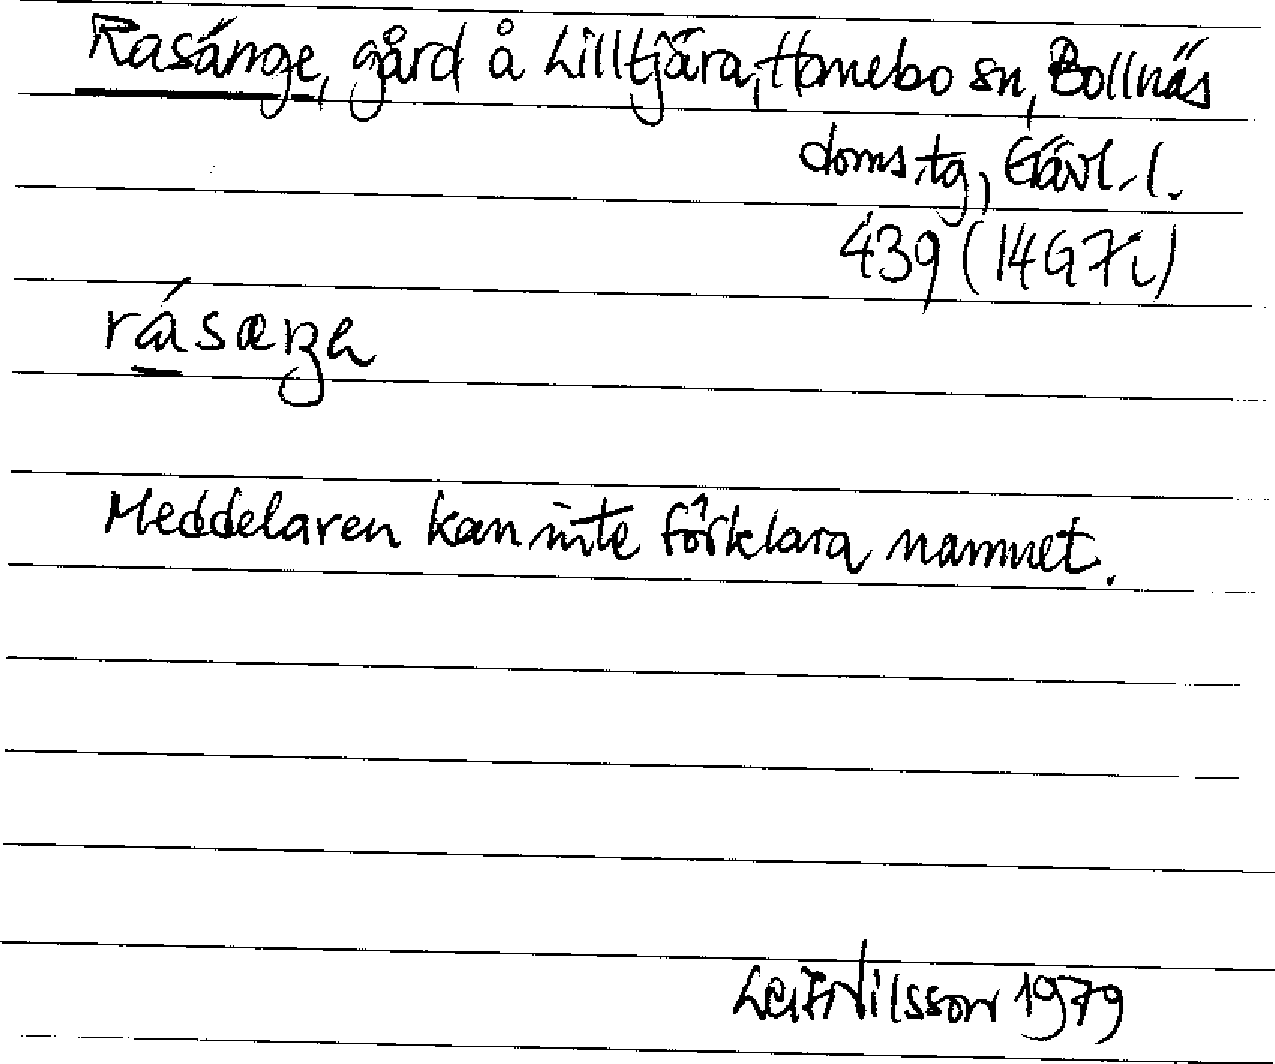 Rasänge, gård å Lilltjära, Hanebo sn, Bollnäs
doms.tg, Gävl. l.
439 (14G7i)
Meddelaren kan inte förklara namnet.
Leif Nilsson 1979